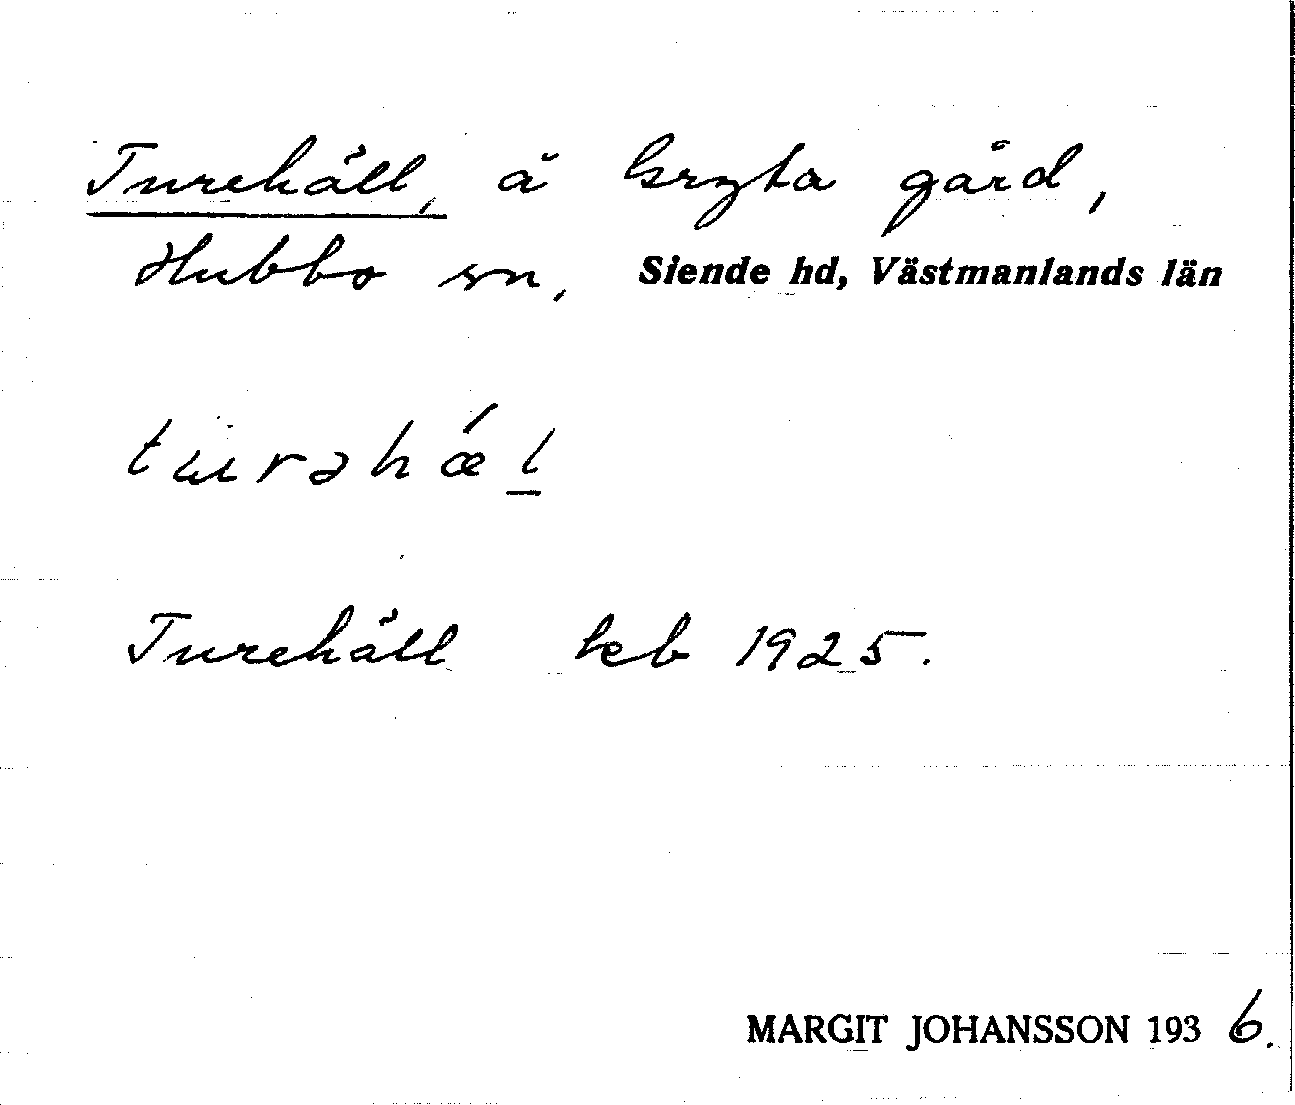 Turehäll, å Gryta gård,
Hubbo sn, Siende hd, Västmanlands län
tu̇rəhǽl̲
Turehäll keb 1925.
MARGIT JOHANSSON 1936.